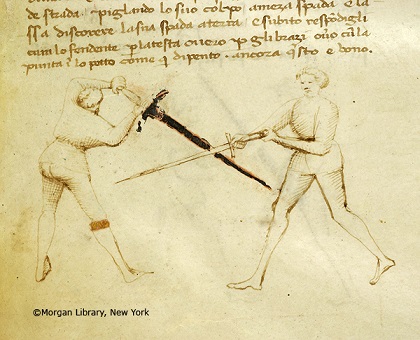 de strada. pigliando lo suo colpo a meza spada. e la
ssa discorere la sua spada a terra e subito respondigli
cum lo fendente per la testa overo per gli brazi. ovo cū la
punta ī lo petto come q̄ dipento. ancora q̄sto e bono.
©Morgan Library, New York